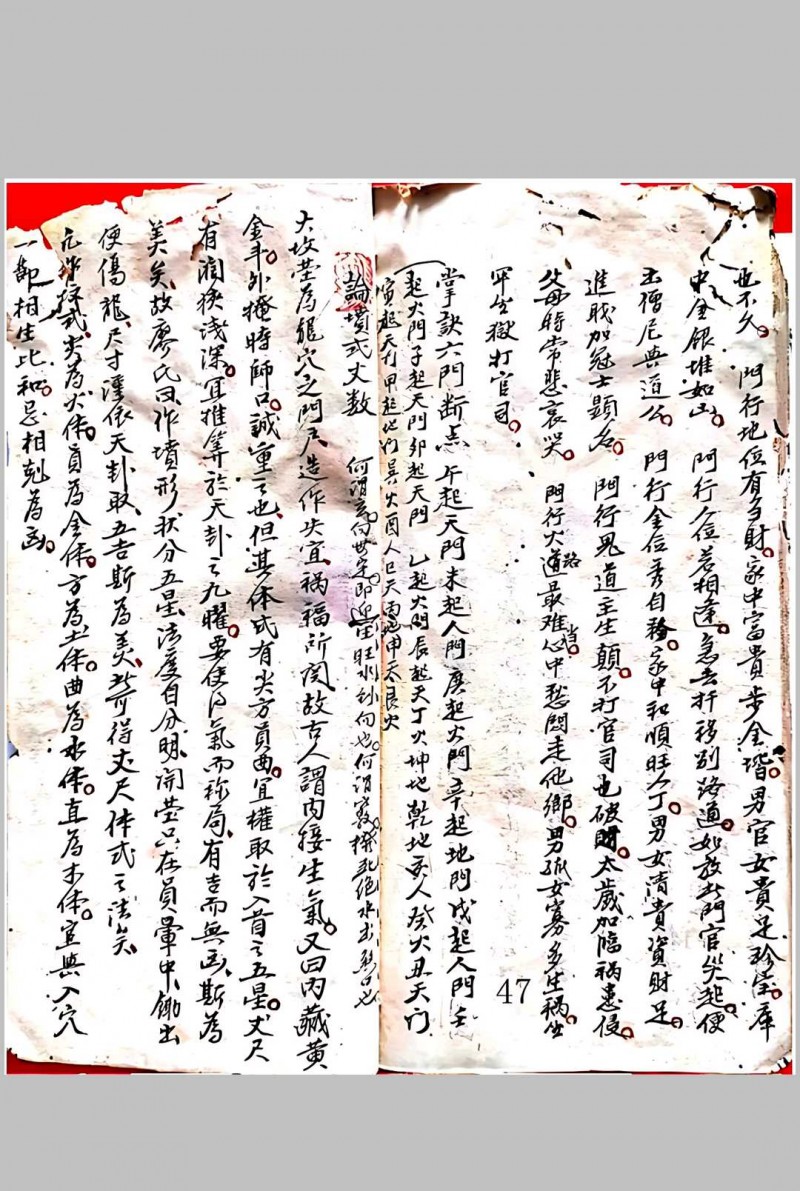 也不久。門行地位有多財。家中富貴步金堦。男官女貴足珍寶。庫
中金銀堆如山。門行人位若相逢。急去扦移別路通。如教此門官災起。便
出僧尼與道公。門行金位秀自矜。家中和順旺人丁。男女清貴資財足。
進財加冠士顯名。門行鬼道主生顛。不打官司也破財。太歲加臨禍患侵。
父母時常悲哀哭。門行火道路最难當。心中愁悶走他鄉。男孤女寡多生禍。坐
牢坐獄打官司。
47
掌訣六門断 午起天門 未起人門 庚起火門 辛起地門 戌起人門 壬
起火門 子起天門 卯起天門 乙起火門 辰起天 丁火 坤地 乾地 亥人 癸火 丑天門
寅起天 甲起地 巽火 酉人 巳天 丙地 申天 艮火
論墳式丈数 何謂 向 即迎生旺水到向也。何謂 死絕水出 也
大坟茔為龍穴之門尺造作失宜。禍福所関。故古人謂內接生氣。又曰內藏黃
金斗。外掩時師口。誠重之也。但其体式有尖方員曲。宜權取於入首之五星。丈尺
有濶狹浅深。宜推等於天卦之九曜。要使得氣而称局。有吉而無凶。斯為
美矣。故廖氏曰作墳形狀分五星。法度自分明。開茔只在員暈中。鋤出
便傷龍。尺寸謹依天卦取。五吉斯為美。此可得丈尺体式之法矣
凡作坟式。尖為火体。員為金体。方為土体。曲為水体。直為木体。宜與入穴
一節相生比和。忌相剋為凶。